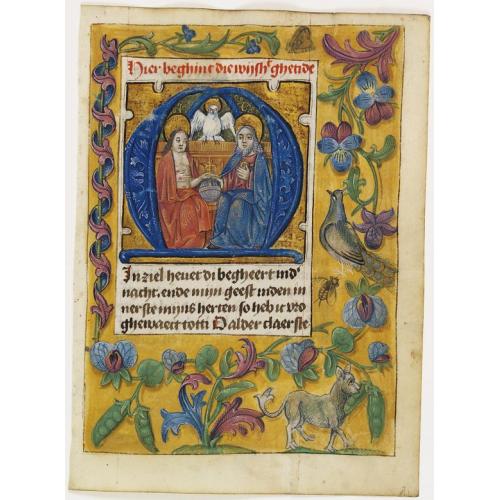 Hier beghint die wijsh[t] ghetide
In ziel hevet di begheert ind'
nacht. ende mijn geest inden in
nerste mijns herten so heb ic vro
ghewaect totti O alder claerste